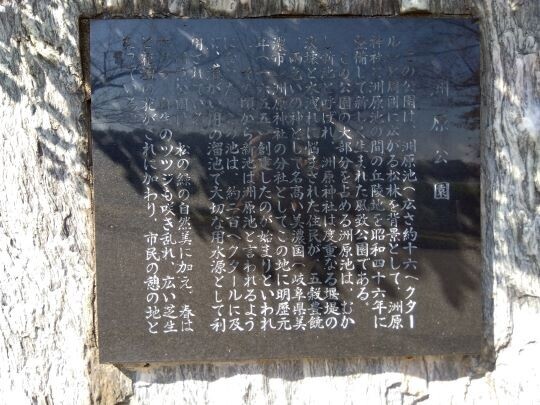 洲原公園
この公園は、洲原池(広さ約十六ヘクター
ル)と周囲に広がる松林を背景として、洲原
神社、洲原池の間の丘陵地を昭和四十六年に
整備して新しく生まれた風致公園である。
この公園の大部分を占める洲原池は、むか
し新池と呼ばれ、洲原神社は度重なる堰堤の
決壊と水涸れに悩まされた住民が、五穀豊饒
雨乞いの神として名高い美濃国(岐阜県美
濃市)洲原神社の分社として、この地に明暦元
年(一六五五)創建したのが始まりといわれ
頃から新池は洲原池と言われるよう
の池は、約二百ヘクタールに及
用の溜池で大切な用水源として利
用されている。
松の緑の自然美に加え、春は
のツツジも咲き乱れ、広い芝生
の花がこれにかわり、市民の憩の地と
なっている。